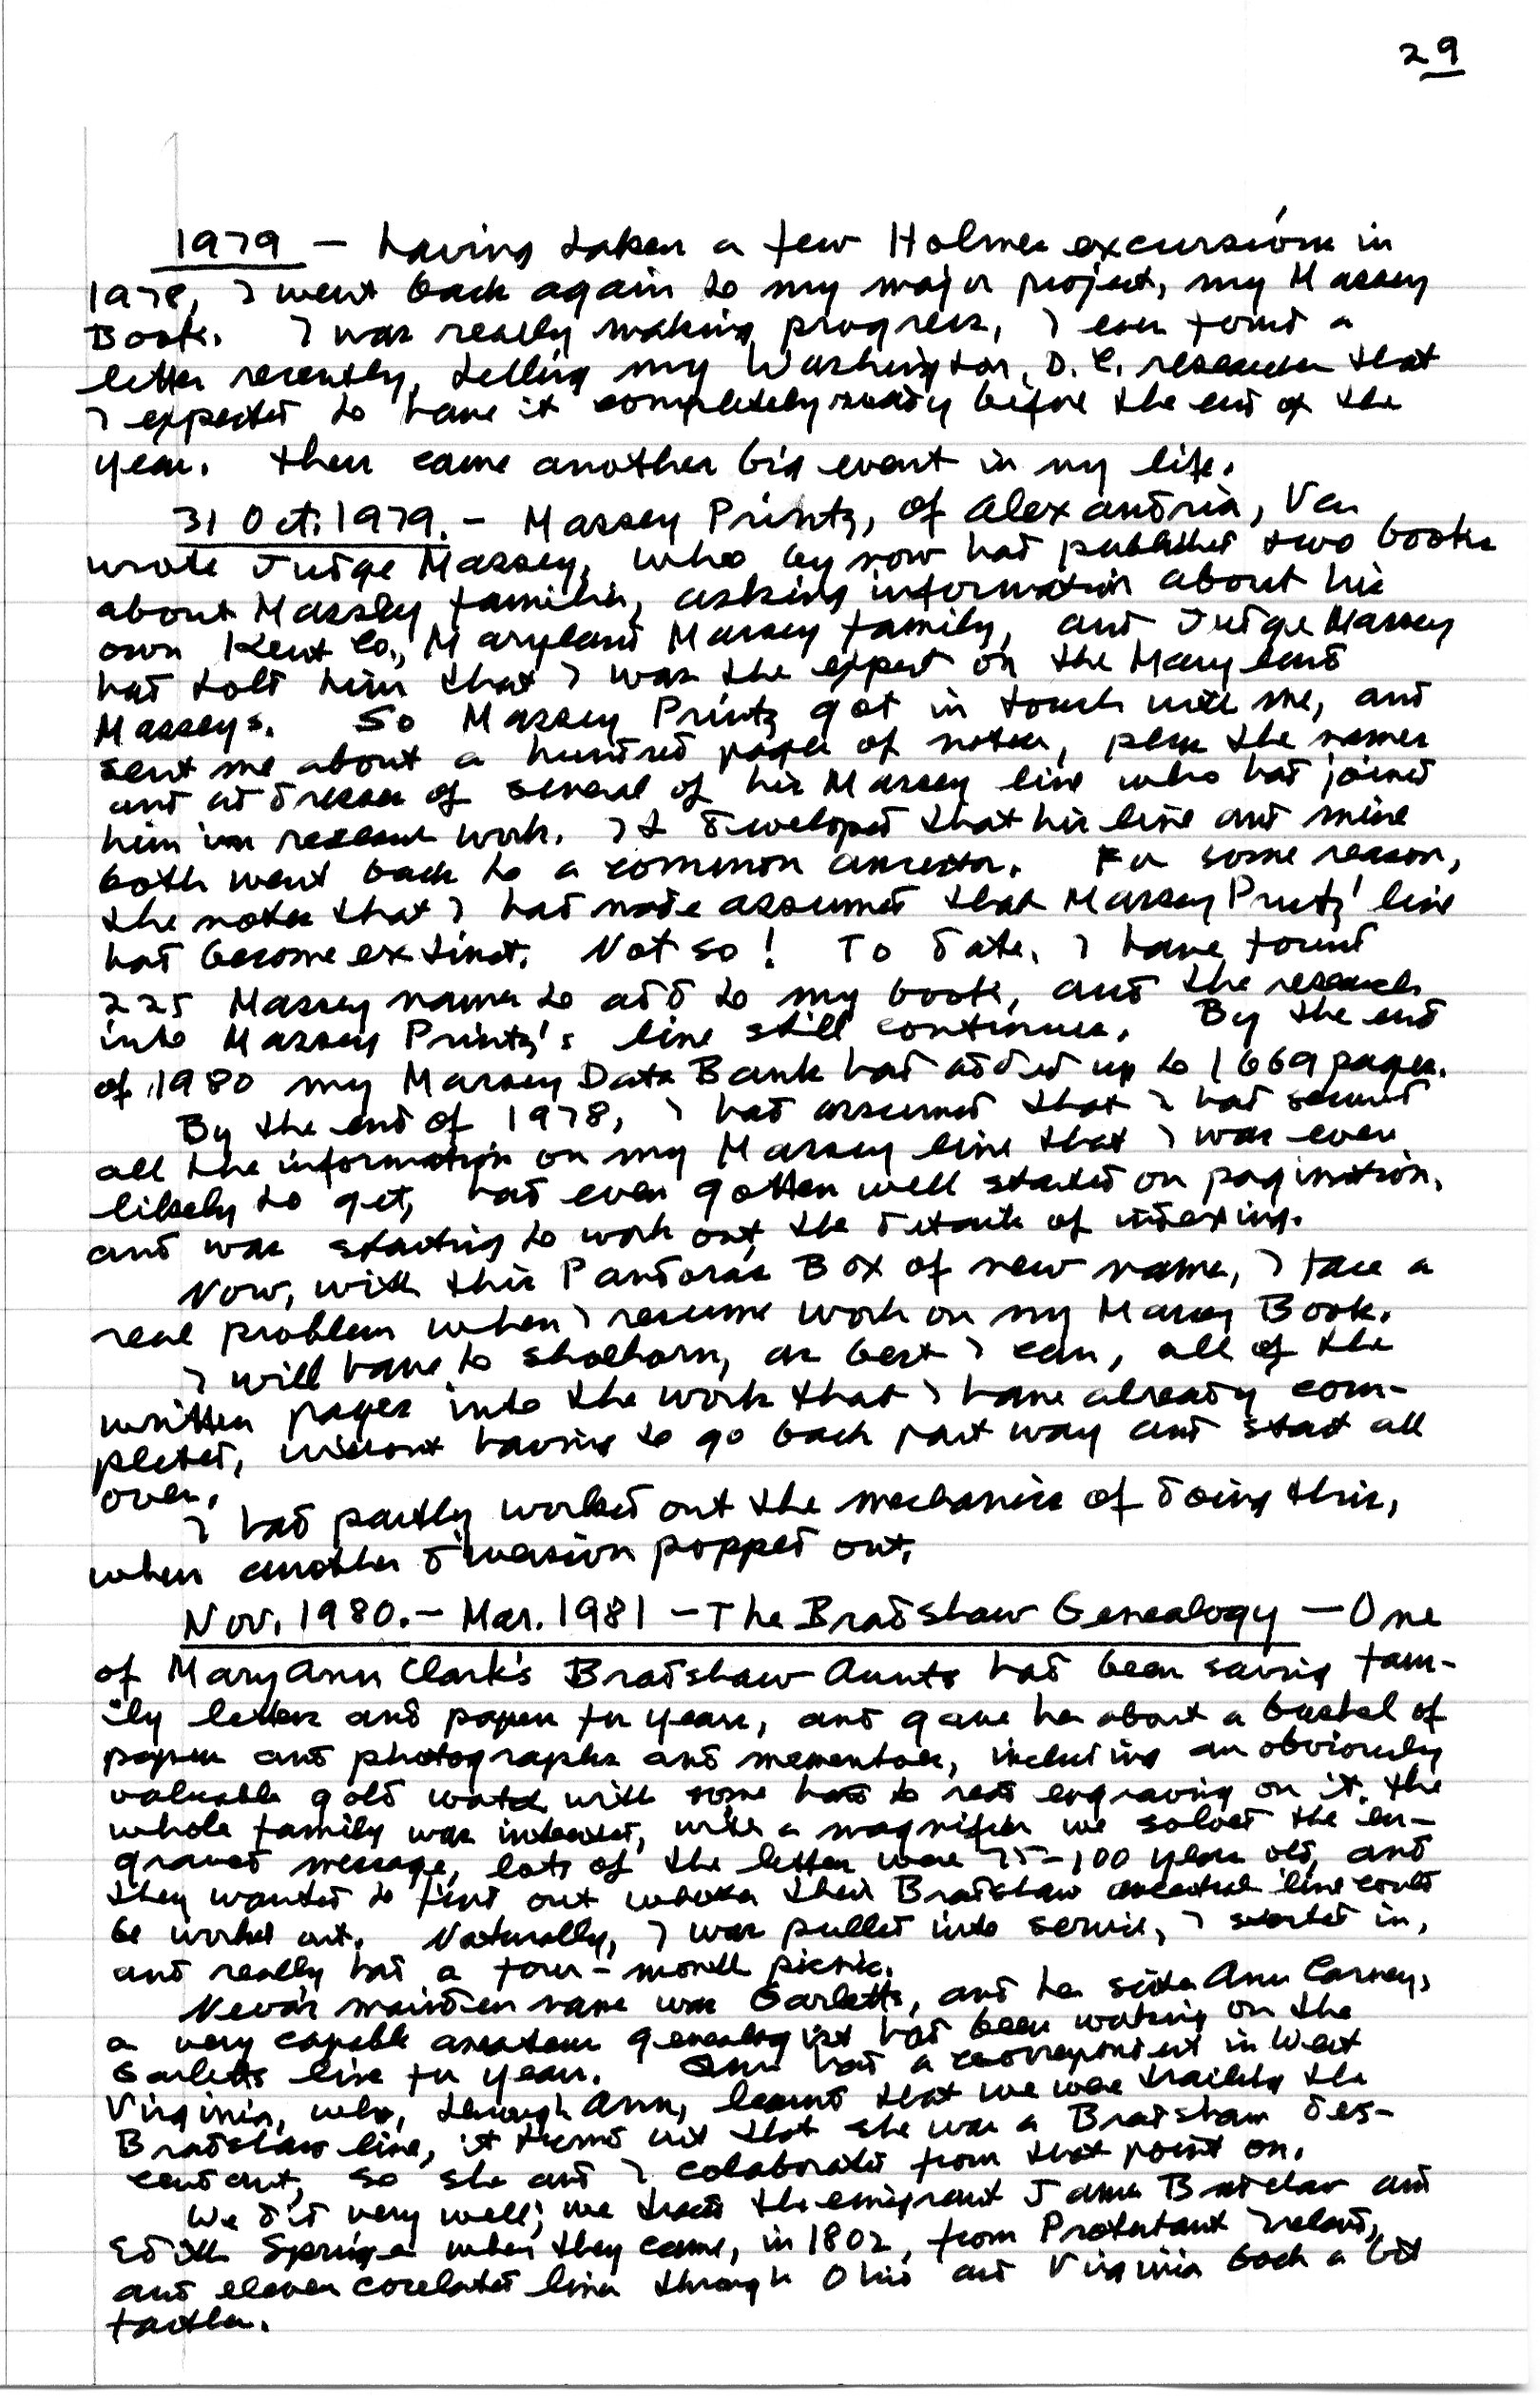 29
1979 – having taken a few Holmes excursions in
1978, I went back again to my major project, my Massey
Book. I was really making progress, I even found a
letter recently, telling my Washington, D.C. researcher that
I expected to have it completely ready before the end of the
year. Then came another big event in my life.
31 Oct. 1979. – Massey Printz, of Alexandria, Va.
wrote Judge Massey, who by now had published two books
about Massey families, asking information about his
own Kent Co., Maryland Massey family, and Judge Massey
had told him that I was the expert on the Maryland
Masseys. So Massey Printz got in touch with me, and
sent me about a hundred pages of notes, plus the names
and addresses of several of his Massey line who had joined
him in research work. It developed that his line and mine
both went back to a common ancestor. For some reason,
the notes that I had made assumed that Massey Printz' line
had become extinct. Not so! To date, I have found
225 Massey names to add to my book, and the research
into Massey Printz's line still continues. By the end
of 1980 my Massey Data Bank had added up to 1669 pages.
By the end of 1978, I had assumed that I had secured
all the information on my Massey line that I was ever
likely to get, had even gotten well started on pagination,
and was starting to work out the details of indexing.
Now, with this Pandora's Box of new names, I face a
real problem when I resume work on my Massey Book.
I will have to shoehorn, as best I can, all of the
written pages into the work that I have already com-
pleted, without having to go back part way and start all
over.
I had partly worked out the mechanics of doing this,
when another diversion popped out.
Nov. 1980. – Mar. 1981 – The Bradshaw Genealogy – One
of Mary Ann Clark's Bradshaw Aunts had been saving fam-
ily letters and papers for years, and gave her about a bushel of
papers and photographs and mementoes, including an obviously
valuable gold watch with some hard to read engraving on it. The
whole family was interested, with a magnifier we solved the en-
graved message, lots of the letters were 75–100 years old, and
they wanted to find out whether their Bradshaw ancestral line could
be worked out. Naturally, I was pulled into service, I started in,
and really had a four-month picnic.
Neva's maiden name was Garletts, and her sister Ann Carney,
a very capable amateur genealogist had been working on the
Garletts line for years. Ann had a correspondent in West
Virginia, who, through Ann, learned that we were trailing the
Bradshaw line, it turned out that she was a Bradshaw des-
cendant, so she and I colaborated from that point on.
We did very well; we traced the emigrant James Bradshaw and
Edith Springer when they came, in 1802, from Protestant Ireland,
and eleven corelated lines through Ohio and Virginia back a bit
farther.